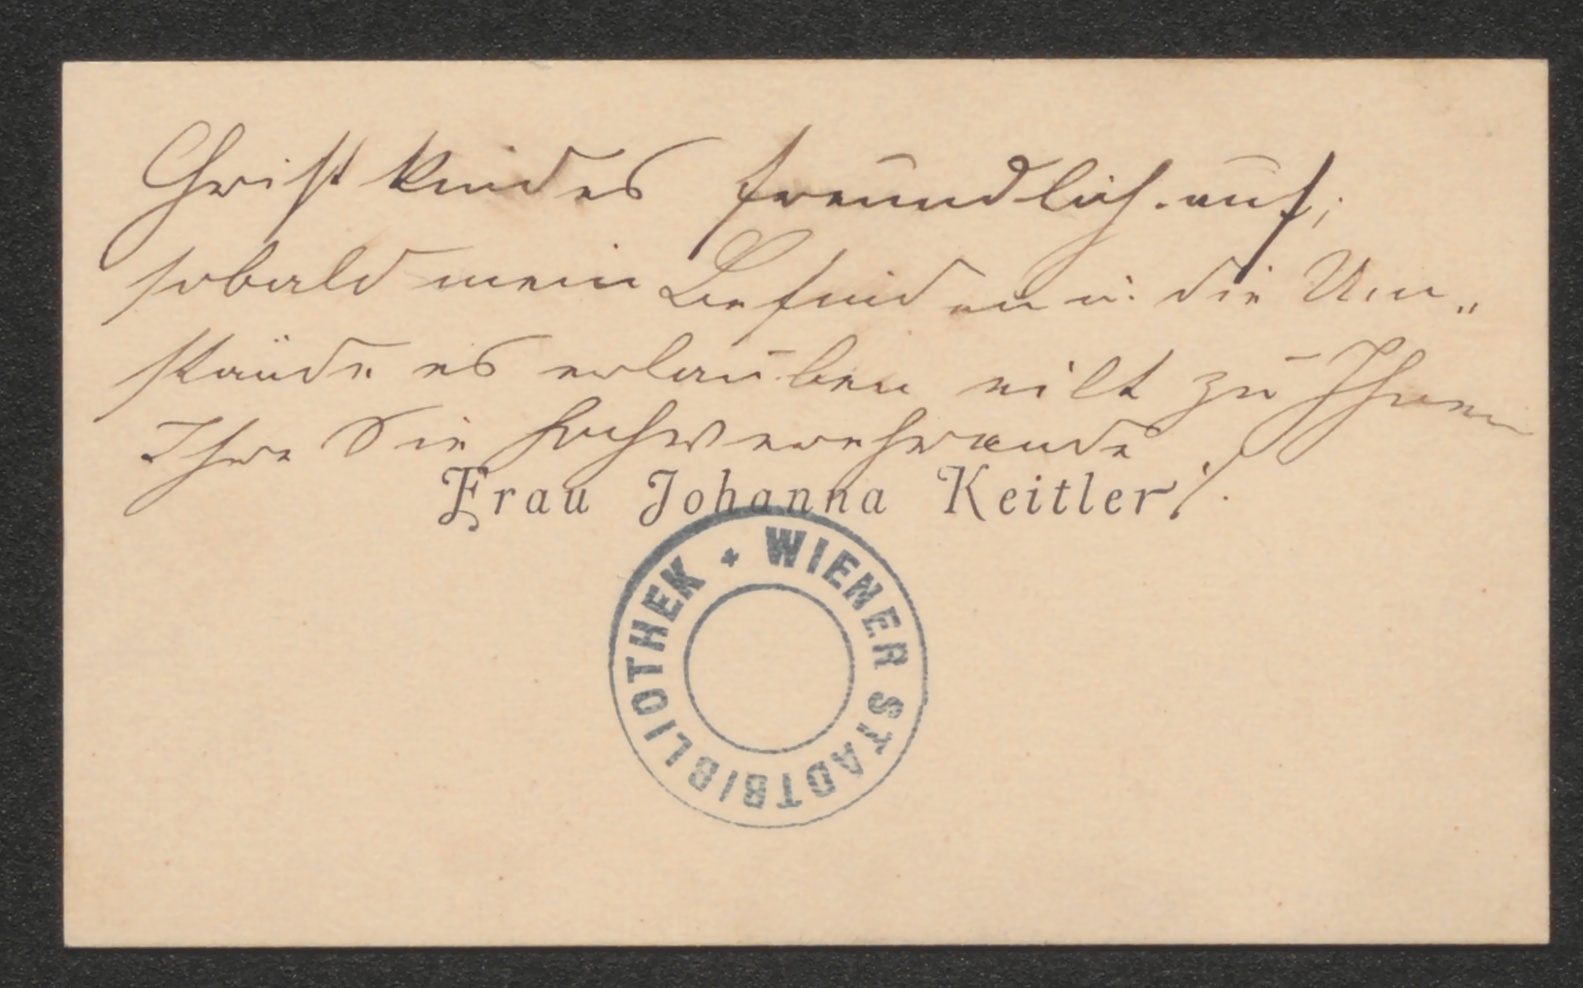 Christkindes freundlich auf;
sobald mein Befinden u. die Um„
stände es erlauben eilt zu Ihnen
Ihre Sie hochverehrende
Frau Johanna Keitler /.
WIENER STADTBIBLIOTHEK *